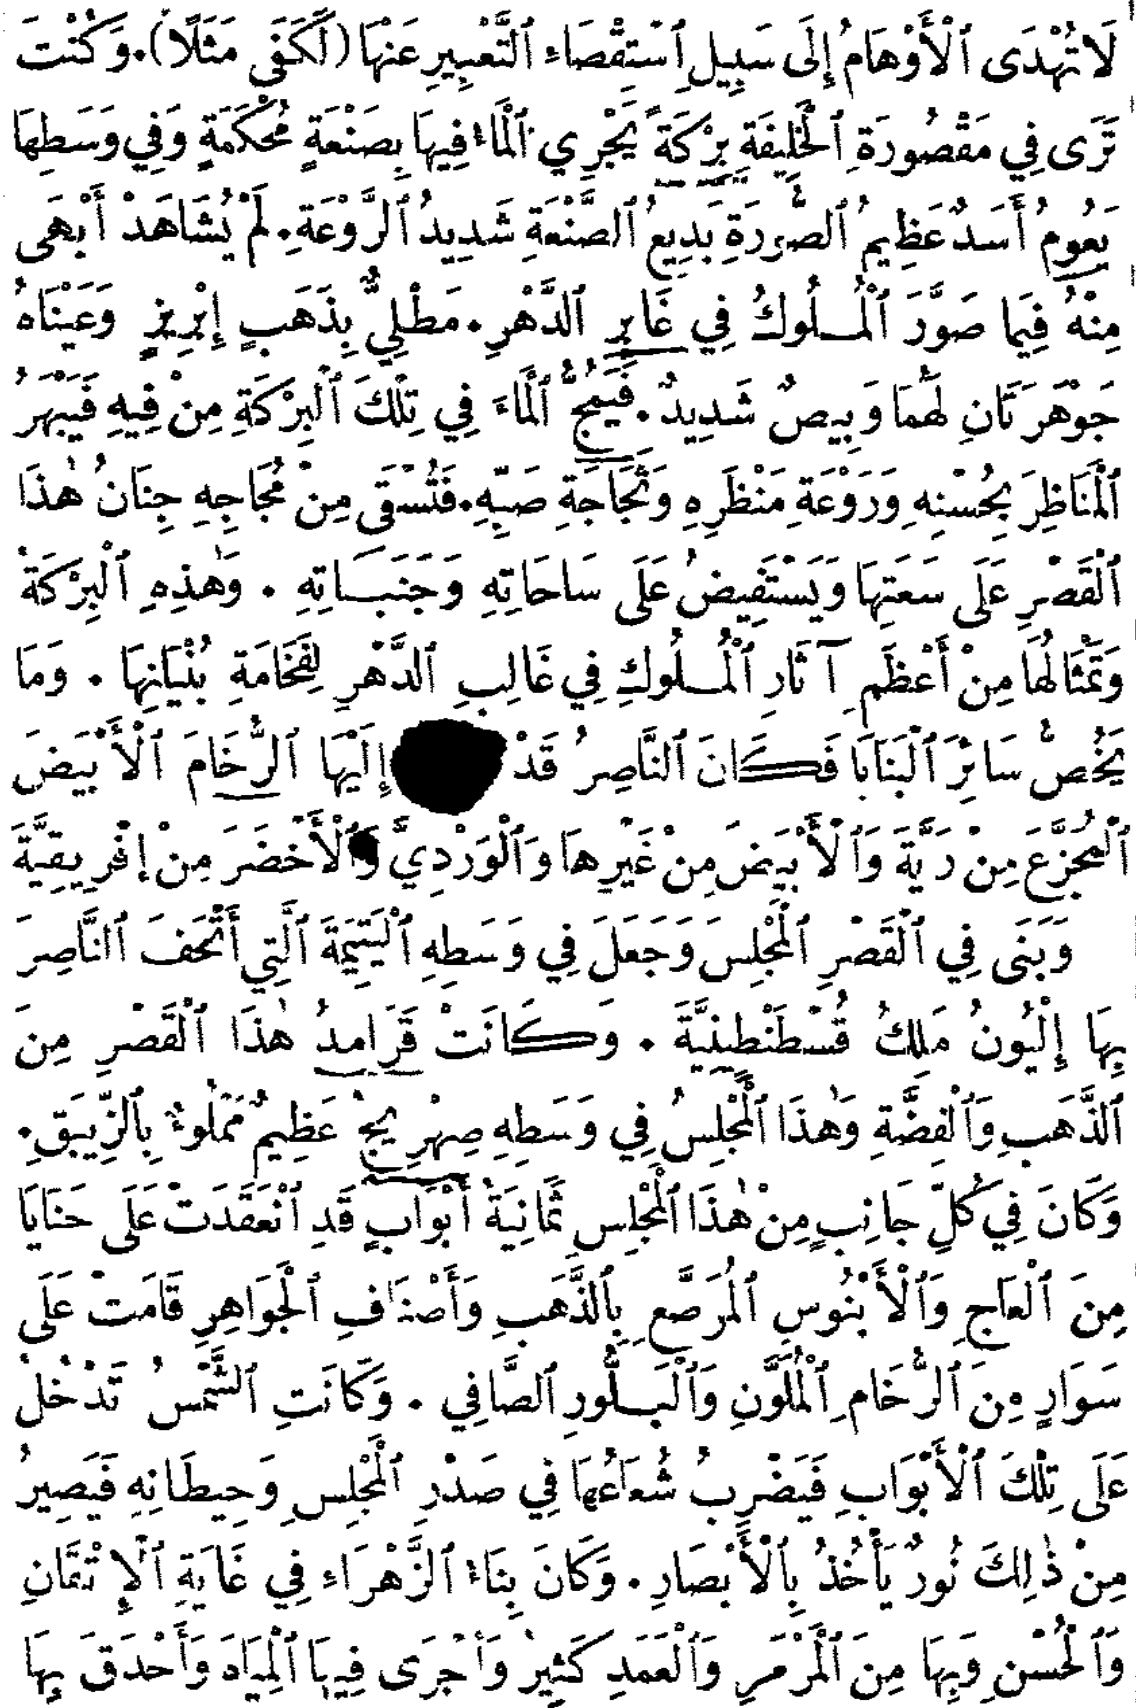 لَا تُهْدَى ٱلْأَوْهَامُ إِلَى سَبِيلِ ٱسْتِقْصَاءِ ٱلتَّعْبِيرِ عَنْهَا (لَكَفَى مَثَلًا). وَكُنْتَ
تَرَى فِي مَقْصُورَةِ ٱلْخَلِيفَةِ بِرْكَةً يَجْرِي ٱلْمَاءُ فِيهَا بِصَنْعَةٍ مُحْكَمَةٍ وَفِي وَسَطِهَا
يَعُومُ أَسَدٌ عَظِيمُ ٱلصُّورَةِ بَدِيعُ ٱلصَّنْعَةِ شَدِيدُ ٱلرَّوْعَةِ. لَمْ يُشَاهَدْ أَبْهَى
مِنْهُ فِيمَا صَوَّرَ ٱلْمُلُوكُ فِي غَابِرِ ٱلدَّهْرِ. مَطْلِيٌّ بِذَهَبٍ إِبْرِيزٍ وَعَيْنَاهُ
جَوْهَرَتَانِ لَهُمَا وَبِيصٌ شَدِيدٌ. فَيَمُجُّ ٱلْمَاءَ فِي تِلْكَ ٱلْبِرْكَةِ مِنْ فِيهِ فَيَبْهَرُ
ٱلْمَنَاظِرَ بِحُسْنِهِ وَرَوْعَةِ مَنْظَرِهِ وَثَجَاجَةِ صَبِّهِ. فَتُسْقَى مِنْ مُجَاجِهِ جِنَانُ هٰذَا
ٱلْقَصْرِ عَلَى سَعَتِهَا وَيَسْتَفِيضُ عَلَى سَاحَاتِهِ وَجَنَبَاتِهِ. وَهٰذِهِ ٱلْبِرْكَةُ
وَتَمْثَالُهَا مِنْ أَعْظَمِ آثَارِ ٱلْمُلُوكِ فِي غَالِبِ ٱلدَّهْرِ لِفَخَامَةِ بُنْيَانِهَا. وَمَا
يَخُصُّ سَائِرَ ٱلْبَنَايَا فَكَانَ ٱلنَّاصِرُ قَدْ إِلَيْهَا ٱلرُّخَامَ ٱلْأَبْيَضَ
ٱلْمُجَزَّعَ مِنْ رَيَّةَ وَٱلْأَبْيَضَ مِنْ غَيْرِهَا وَٱلْوَرْدِيَّ وَٱلْأَخْضَرَ مِنْ إِفْرِيقِيَّةَ
وَبَنَى فِي ٱلْقَصْرِ ٱلْمَجْلِسَ وَجَعَلَ فِي وَسَطِهِ ٱلْيَتِيمَةَ ٱلَّتِي أَتْحَفَ ٱلنَّاصِرَ
بِهَا إِلْيُونُ مَلِكُ قُسْطَنْطِينِيَّةَ. وَكَانَتْ قَرَامِدُ هٰذَا ٱلْقَصْرِ مِنَ
ٱلذَّهَبِ وَٱلْفِضَّةِ وَهٰذَا ٱلْمَجْلِسُ فِي وَسَطِهِ صِهْرِيجٌ عَظِيمٌ مَمْلُوءٌ بِٱلزِّيبَقِ.
وَكَانَ فِي كُلِّ جَانِبٍ مِنْ هٰذَا ٱلْمَجْلِسِ ثَمَانِيَةُ أَبْوَابٍ قَدِ ٱنْعَقَدَتْ عَلَى حَنَايَا
مِنَ ٱلْعَاجِ وَٱلْأَبْنُوسِ ٱلْمُرَصَّعِ بِٱلذَّهَبِ وَأَصْنَافِ ٱلْجَوَاهِرِ قَامَتْ عَلَى
سَوَارٍ مِنَ ٱلرُّخَامِ ٱلْمُلَوَّنِ وَٱلْبَلُّورِ ٱلصَّافِي. وَكَانَتِ ٱلشَّمْسُ تَدْخُلُ
عَلَى تِلْكَ ٱلْأَبْوَابِ فَيَضْرِبُ شُعَاعُهَا فِي صَدْرِ ٱلْمَجْلِسِ وَحِيطَانِهِ فَيَصِيرُ
مِنْ ذٰلِكَ نُورٌ يَأْخُذُ بِٱلْأَبْصَارِ. وَكَانَ بِنَاءُ ٱلزَّهْرَاءِ فِي غَايَةِ ٱلْإِتْقَانِ
وَٱلْحُسْنِ وَبِهَا مِنَ ٱلْمَرْمَرِ وَٱلْعَمَدِ كَثِيرٌ وَأَجْرَى فِيهَا ٱلْمِيَاهَ وَأَحْدَقَ بِهَا